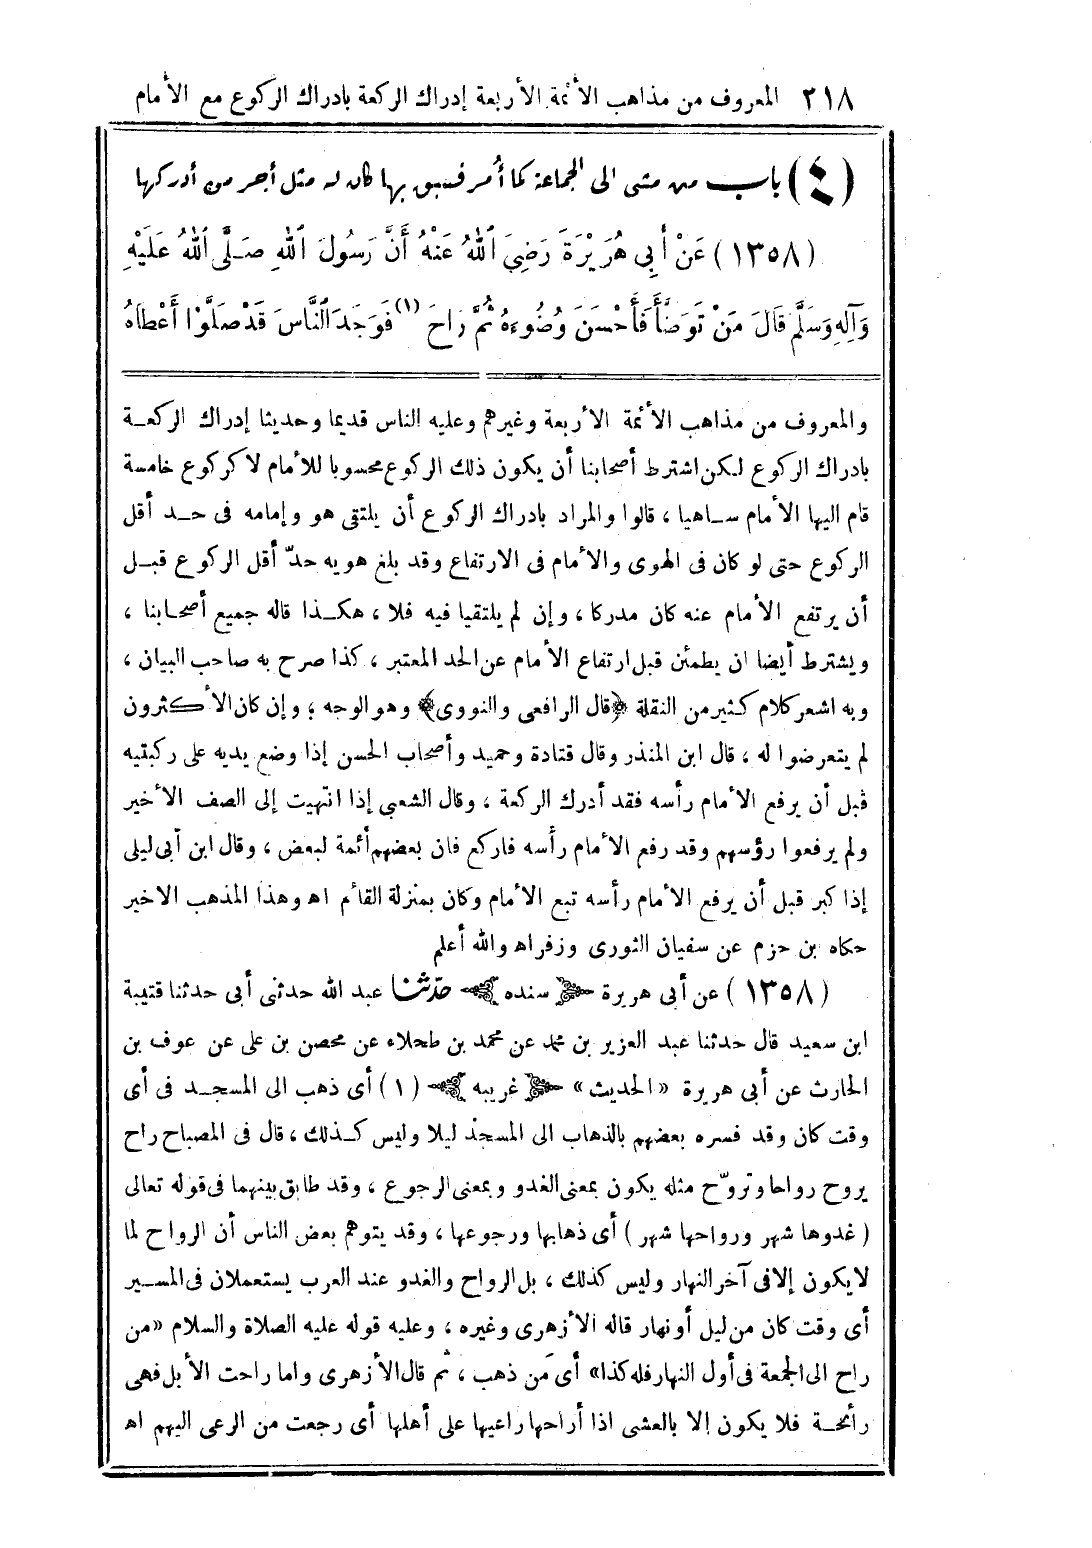 ٢١٨ المعروف من مذاهب الأئمة الأربعة إدراك الركعة بادراك الركوع مع الأمام
(٤) باب من مشى الى الجماعة كما أُمر فسبق بها كان له مثل أجر من أدركها
(١٣٥٨) عَنْ أَبِي هُرَيْرَةَ رَضِيَ اللهُ عَنْهُ أَنَّ رَسُولَ اللهِ صَلَّى اللهُ عَلَيْهِ
وَآلِهِ وَسَلَّمَ قَالَ مَنْ تَوَضَّأَ فَأَحْسَنَ وُضُوءَهُ ثُمَّ رَاحَ (١) فَوَجَدَ النَّاسَ قَدْ صَلَّوْا أَعْطَاهُ
والمعروف من مذاهب الأئمة الأربعة وغيرهم وعليه الناس قديما وحديثا إدراك الركعة
بادراك الركوع لكن اشترط أصحابنا أن يكون ذلك الركوع محسوبا للأمام لا كركوع خامسة
قام اليها الأمام ساهيا ، قالوا والمراد بادراك الركوع أن يلتقى هو وإمامه فى حد أقل
الركوع حتى لو كان فى الهوى والأمام فى الارتفاع وقد بلغ هويه حدّ أقل الركوع قبل
أن يرتفع الأمام عنه كان مدركا ، وإن لم يلتقيا فيه فلا ، هكذا قاله جميع أصحابنا ،
ويشترط أيضا ان يطمئن قبل ارتفاع الأمام عن الحد المعتبر ، كذا صرح به صاحب البيان ،
وبه اشعر كلام كثير من النقلة ﴿قال الرافعى والنووى﴾ وهو الوجه ؛ وإن كان الأكثرون
لم يتعرضوا له ، قال ابن المنذر وقال قتادة وحميد وأصحاب الحسن إذا وضع يديه على ركبتيه
قبل أن يرفع الأمام رأسه فقد أدرك الركعة ، وقال الشعبى إذا انتهيت إلى الصف الأخير
ولم يرفعوا رؤسهم وقد رفع الأمام رأسه فاركع فان بعضهم أئمة لبعض ، وقال ابن أبى ليلى
إذا كبر قبل أن يرفع الأمام رأسه تبع الأمام وكان بمنزلة القائم اه وهذا المذهب الاخير
حكاه بن حزم عن سفيان الثورى وزفر اه والله أعلم
(١٣٥٨) عن أبى هريرة سنده حدّثنا عبد الله حدثنى أبى حدثنا قتيبة
ابن سعيد قال حدثنا عبد العزيز بن محمد عن محمد بن طحلاء عن محصن بن على عن عوف بن
الحارث عن أبى هريرة «الحديث» غريبه (١) أى ذهب الى المسجد فى أى
وقت كان وقد فسره بعضهم بالذهاب الى المسجد ليلا وليس كذلك ، قال فى المصباح راح
يروح رواحا وتروّح مثله يكون بمعنى الغدو وبمعنى الرجوع ، وقد طابق بينهما فى قوله تعالى
( غدوها شهر ورواحها شهر ) أى ذهابها ورجوعها ، وقد يتوهم بعض الناس أن الرواح لما
لا يكون إلا فى آخر النهار وليس كذلك ، بل الرواح والغدو عند العرب يستعملان فى المسير
أى وقت كان من ليل أو نهار قاله الأزهرى وغيره ، وعليه قوله عليه الصلاة والسلام «من
راح الى الجمعة فى أول النهار فله كذا» أى مَن ذهب ، ثم قال الأزهرى واما راحت الأبل فهى
رائحة فلا يكون إلا بالعشى اذا أراحها راعيها على أهلها أى رجعت من الرعى اليهم اه